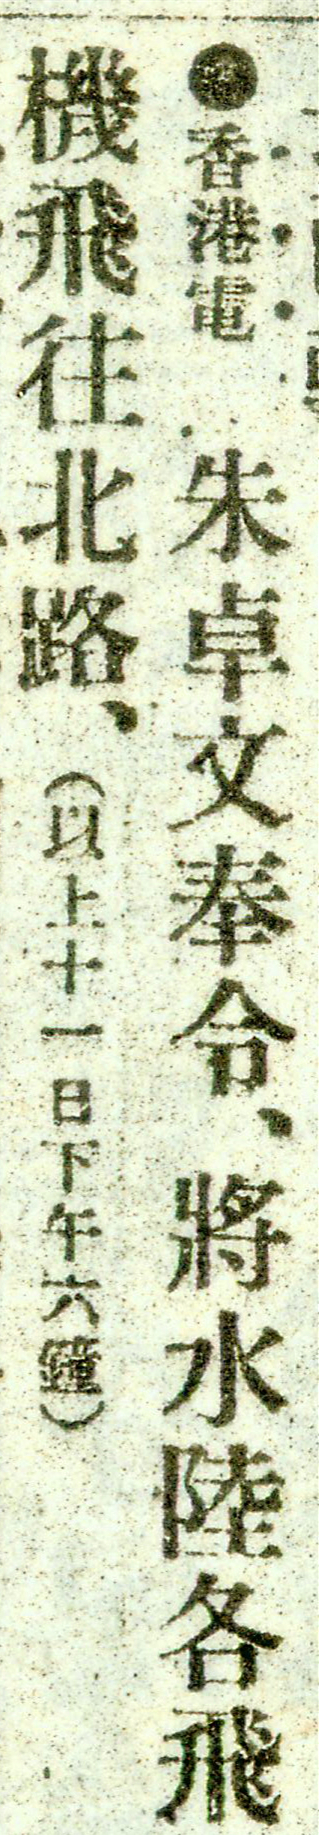 ●香港電　朱卓文奉令、將水陸各飛
機飛往北路、（以上十一日下午六鐘）